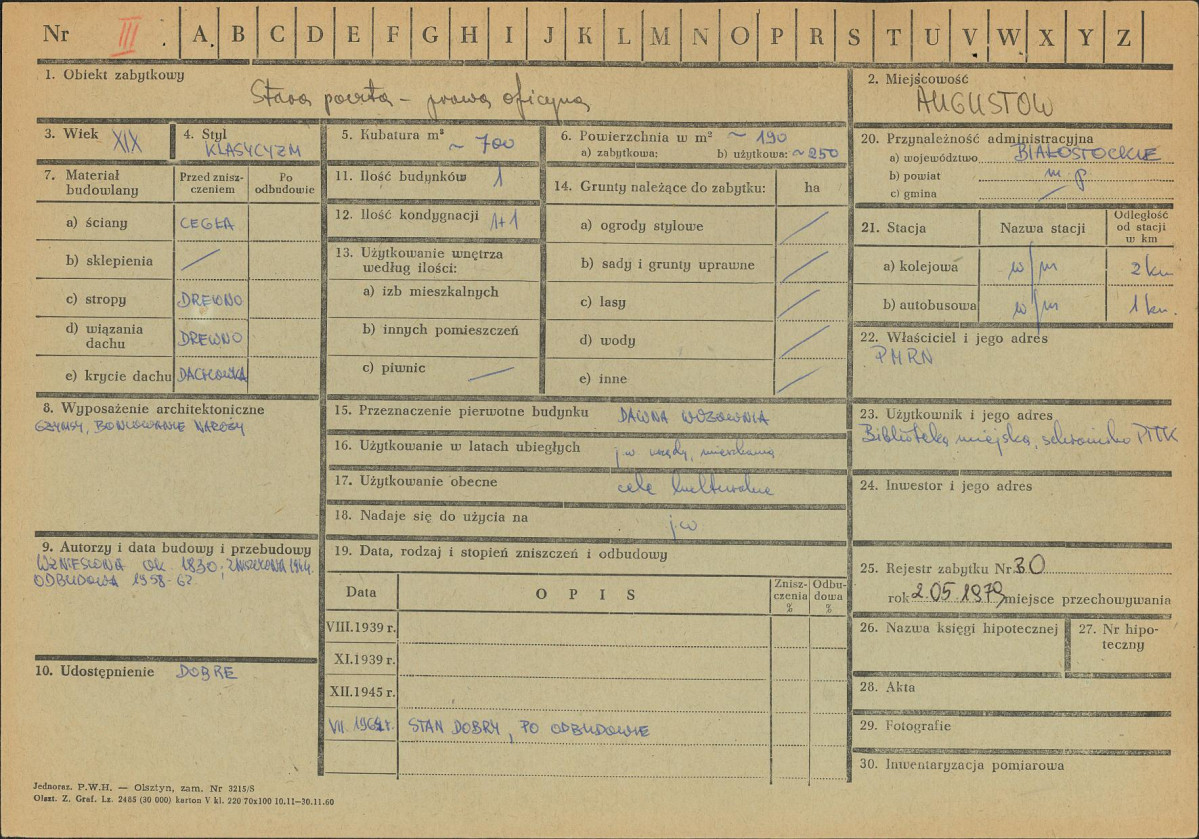 Nr III. A. B C D E F G H I J K L M N O P R S T U V W X Y Z
1. Obiekt zabytkowy
Stara poczta – prawa oficyna
2. Miejscowość
AUGUSTÓW
3. Wiek XIX
4. Styl
KLASYCYZM
5. Kubatura m³
~ 700
6. Powierzchnia w m² ~ 190
a) zabytkowa: b) użytkowa: ~250
20. Przynależność administracyjna
a) województwo BIAŁOSTOCKIE
b) powiat m. p
c) gmina /
7. Materiał budowlany
Przed znisz-czeniem
Po odbudowie
a) ściany CEGŁA
b) sklepienia /
c) stropy DREWNO
d) wiązania dachu DREWNO
e) krycie dachu DACHÓWKA
11. Ilość budynków 1
12. Ilość kondygnacji 1+1
13. Użytkowanie wnętrza
według ilości:
a) izb mieszkalnych
b) innych pomieszczeń
c) piwnic —
14. Grunty należące do zabytku: ha
a) ogrody stylowe /
b) sady i grunty uprawne /
c) lasy /
d) wody /
e) inne /
21. Stacja Nazwa stacji
Odległość
od stacji
w km
a) kolejowa w/m 2 km
b) autobusowa w/m 1 km.
22. Właściciel i jego adres
PMRN
8. Wyposażenie architektoniczne
GZYMSY, BONIOWANIE NAROŻY
15. Przeznaczenie pierwotne budynku DAWNA WOZOWNIA
16. Użytkowanie w latach ubiegłych j.w urzędy, mieszkania
17. Użytkowanie obecne cele kulturalne
18. Nadaje się do użycia na j.w
23. Użytkownik i jego adres
Biblioteka miejska, schronisko PTTK
24. Inwestor i jego adres
9. Autorzy i data budowy i przebudowy
WZNIESIONA OK 1830; ZNISZCZONA 1944.
ODBUDOWA 1958-62
19. Data, rodzaj i stopień zniszczeń i odbudowy
Data
O P I S
Znisz-
czenia
%
Odbu-
dowa
%
VIII.1939 r.
XI.1939 r.
XII.1945 r.
VII. 1962 r. STAN DOBRY, PO ODBUDOWIE
25. Rejestr zabytku Nr 30
rok 2.05.1979 miejsce przechowywania
26. Nazwa księgi hipotecznej
27. Nr hipo-
teczny
10. Udostępnienie DOBRE
28. Akta
29. Fotografie
30. Inwentaryzacja pomiarowa
Jednoraz. P.W.H. — Olsztyn, zam. Nr 3215/S
Olszt. Z. Graf. Lz. 2485 (30 000) karton V kl. 220 70x100 10.11—30.11.60